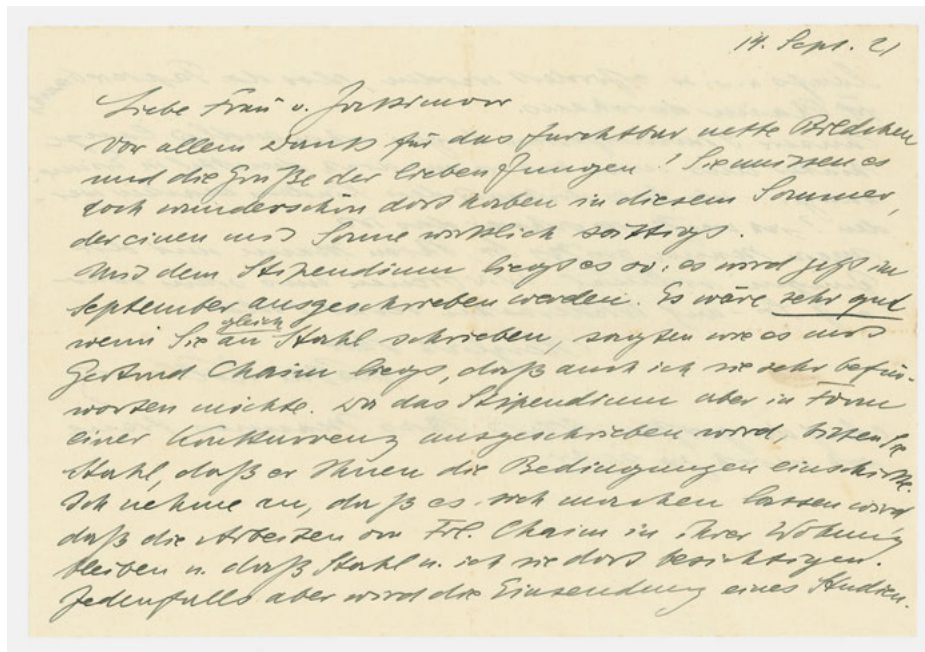 14. Sept. 21
Liebe Frau v.
Vor allem Dank für das furchtbar nette Bildchen
und die Grüße der lieben Jungen! Sie müssen es
doch wunderschön dort haben in diesem Sommer,
der einen mit Sonne wirklich sättigt.
Mit dem Stipendium liegt es so: es wird jetzt im
September ausgeschrieben werden. Es wäre sehr gut
wenn Sie gleich an Stahl schrieben, sagten wie es mit
Gertrud Chaim liegt, daß auch ich sie sehr befür-
worten möchte. Da das Stipendium aber in Form
einer Konkurrenz ausgeschrieben wird, bitten Sie
Stahl, daß er Ihnen die Bedingungen einschickt.
Ich nehme an, daß es sich machen lassen wird
daß die Arbeiten von Frl. Chaim in ihrer Wohnung
bleiben u. daß Stahl u. ich sie dort besichtigen.
Jedenfalls aber wird die Einsendung eines Studien-